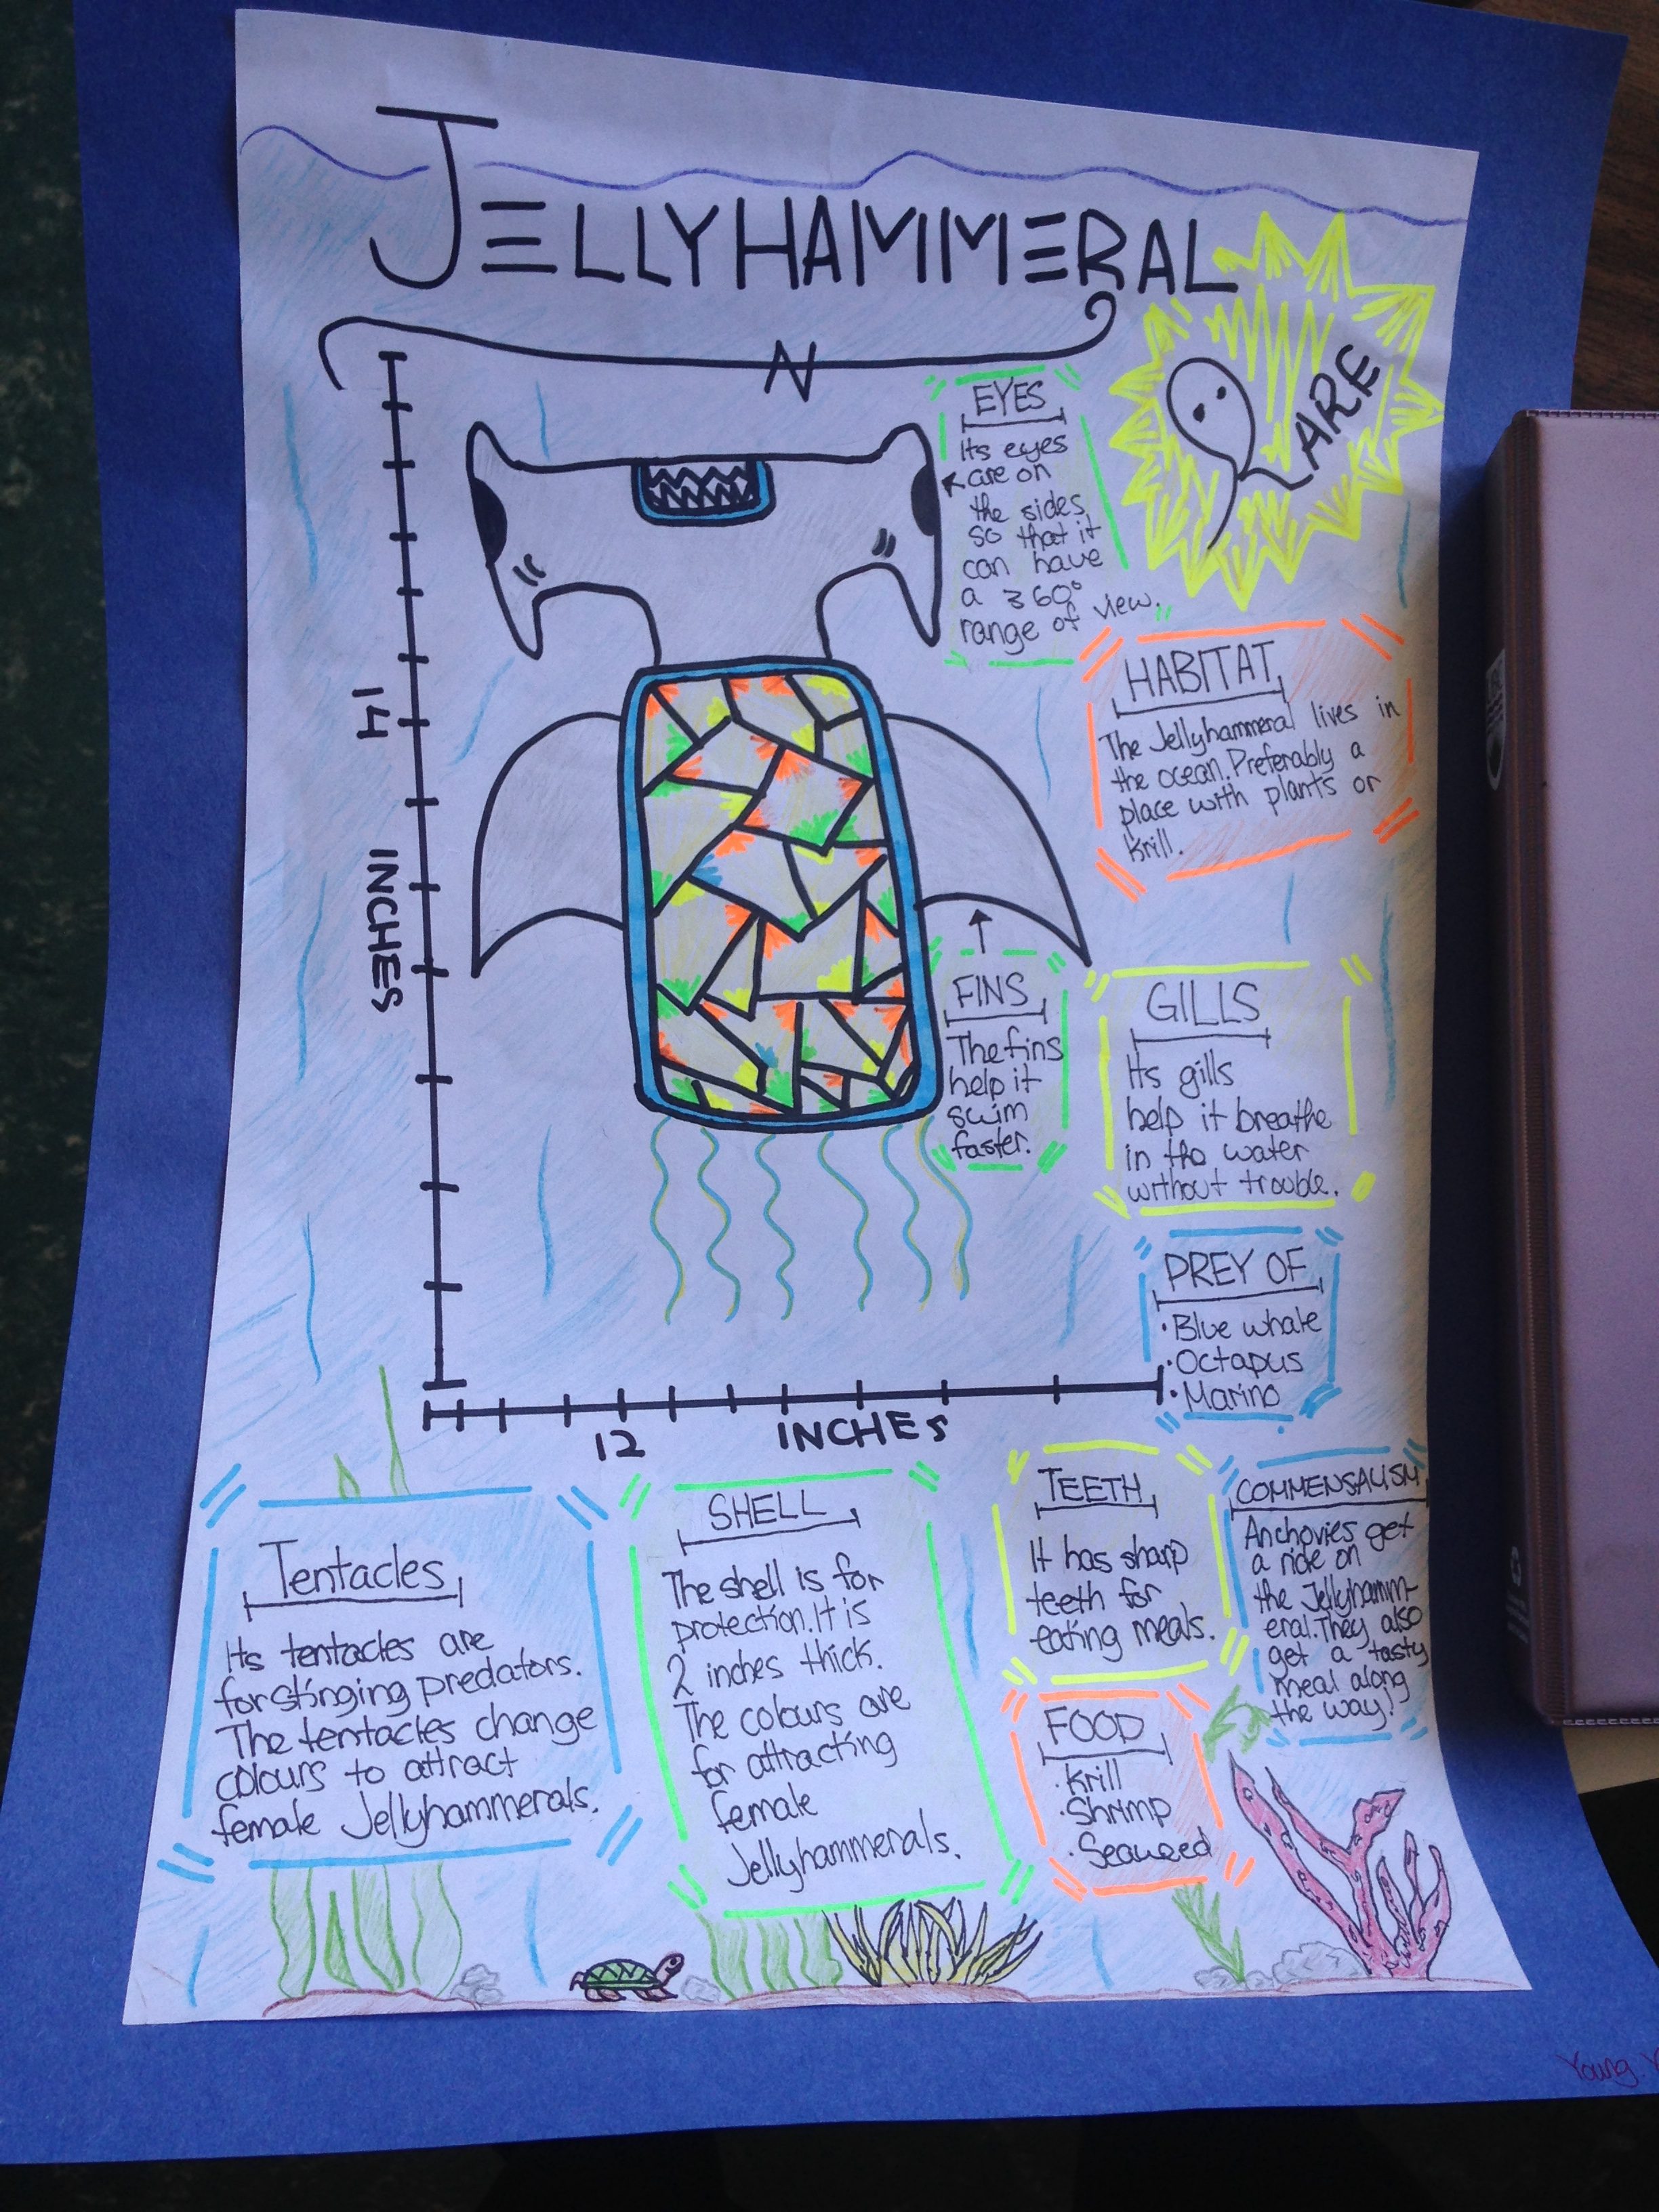 JELLYHAMMERAL
N
RARE
EYES
Its eyes
are on
the sides
so that it
can have
a 360°
range of view.
HABITAT
The Jellyhammeral lives in
the ocean. Preferably a
place with plants or
krill.
14
INCHES
FINS
The fins
help it
swim
faster.
GILLS
Its gills
help it breathe
in the water
without trouble.
PREY OF
· Blue whale
· Octapus
· Marino
12 INCHES
Tentacles
Its tentacles are
for stinging predators.
The tentacles change
colours to attract
female Jellyhammerals.
SHELL
The shell is for
protection. It is
2 inches thick.
The colours are
for attracting
female
Jellyhammerals.
TEETH
It has sharp
teeth for
eating meals.
FOOD
· Krill
· Shrimp
· Seaweed
COMMENSALISM
Anchovies get
a ride on
the Jellyhamm-
eral. They also
get a tasty
meal along
the way!
Young